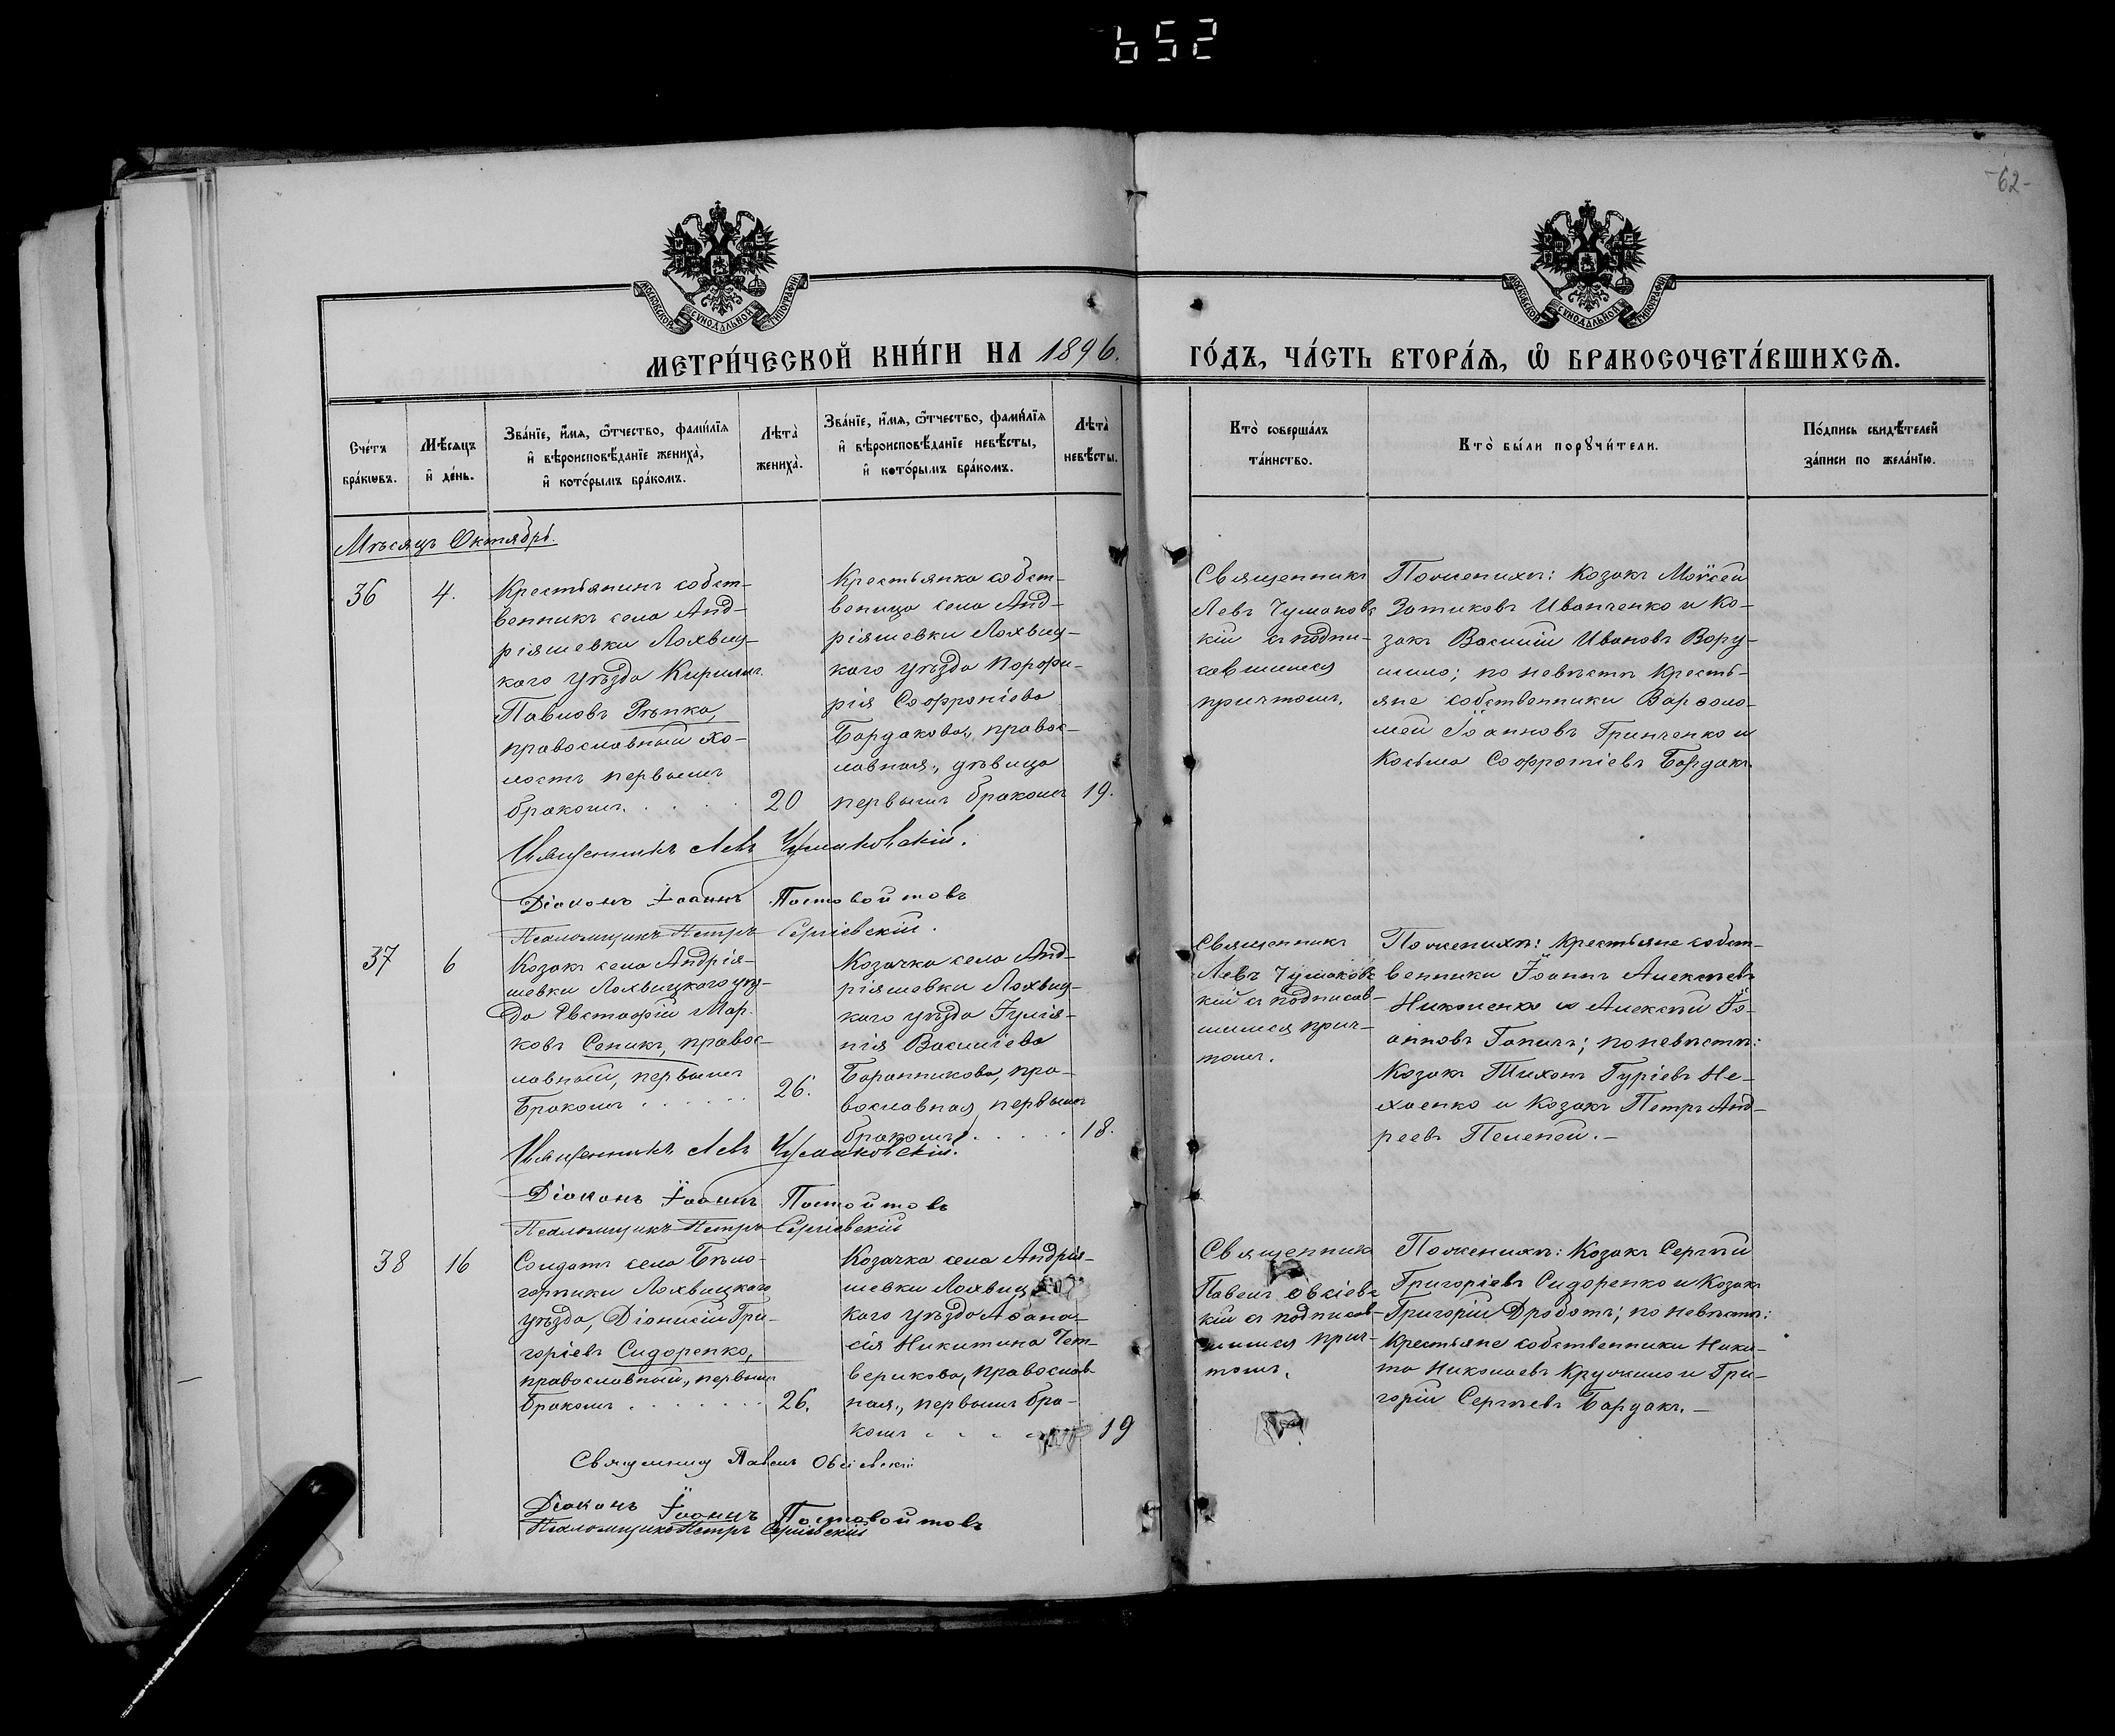 652
-62-
МОСКОВСКОЙ СѴНОДАЛЬНОЙ ТИПОГРАФІИ
МОСКОВСКОЙ СѴНОДАЛЬНОЙ ТИПОГРАФІИ
МЕТРИ́ЧЕСКОЙ КНИ́ГИ НА 1896.
ГО́ДЪ, ЧА́СТЬ ВТОРА́Ѧ, Ѡ҆ БРАКОСОЧЕТА́ВШИХСѦ.
Сче́тъ
бра́кѡвъ.
Мѣ́сяцъ
и҆ де́нь.
Зва́нїе, и҆́мя, ѻ҆́тчество, фами́лїя
и҆ вѣроисповѣ́данїе жениха̀,
и҆ кото́рымъ бра́комъ.
Лѣта̀
жениха̀.
Зва́нїе, и҆́мя, ѻ҆́тчество, фами́лїя
и҆ вѣроисповѣ́данїе невѣ́сты,
и҆ кото́рымъ бра́комъ.
Лѣта̀
невѣ́сты.
Кто̀ соверша́лъ
та́инство.
Кто̀ бы́ли порꙋчи́тели.
По́дпись свидѣ́телей
за́писи по жела́нїю.
Мѣсяцъ Октябрь.
36
4.
Крестьянинъ собст-
венникъ села Анд-
ріяшевки Лохвиц-
каго уѣзда Кириллъ
Павловъ Рѣпка,
православный хо-
лостъ первымъ
бракомъ.
20
Крестьянка собст-
веница села Анд-
ріяшевки Лохвиц-
каго уѣзда Порфи-
рія Софроніева
Бардакова, правос-
лавная, дѣвица
первымъ бракомъ
19.
Священникъ
Левъ Чумаковс
кій съ подпи-
савшимся
причтомъ.
По женихѣ: Козакъ Моѵсей
Зотиковъ Иванченко и Ко-
закъ Василій Ивановъ Вору-
шило; по невѣстѣ Кресть-
яне собственники Варѳоло-
мей Іоанновъ Гринченко и
Косьма Софроніевъ Бардакъ.
Священникъ Левъ Чумаковскій.
Діаконъ Іоаннъ Постовойтовъ
Псаломщикъ Петръ Сергіевскій.
37
6
Козакъ села Андрія-
шевки Лохвицкаго уѣз-
да Евстафій Мар-
ковъ Сеникъ, правос-
лавный, первымъ
бракомъ
26.
Козачка села Анд-
ріяшевки Лохвиц-
каго уѣзда Іуліа-
нія Василіева
Баранникова, пра-
вославная, первымъ
бракомъ
18.
Священникъ
Левъ Чумаковс
кій съ подписав-
шимся прич-
томъ.
По женихѣ: Крестьяне собст-
венники Іоаннъ Алексѣевъ
Николенко и Алексѣй Іо-
анновъ Ганичъ; по невѣстѣ:
Козакъ Тихонъ Гуріевъ Не-
хаенко и Козакъ Петръ Анд-
реевъ Пелепей.-
Священникъ Левъ Чумаковскій.
Діаконъ Іоаннъ Постойтовъ
Псаломщикъ Петръ Сергіевскій
38
16
Солдатъ села Бѣло-
горѣлки Лохвицкаго
уѣзда, Діонисій Гри-
горіевъ Сидоренко,
православный, первымъ
бракомъ
26.
Козачка села Андрія-
шевки Лохвиц-
каго уѣзда Аѳана-
сія Никитина Чет-
верикова, православ-
ная, первымъ бра-
комъ
19
Священникъ
Павелъ Овсіевс
кій съ подписав-
шимся прич-
томъ.
По женихѣ: Козакъ Сергѣй
Григоріевъ Сидоренко и Козакъ
Григорій Дроботъ; по невѣстѣ:
Крестьяне собственники Ники-
та Николаевъ Кружило и Гри-
горій Сергѣевъ Бардакъ.-
Священникъ Павелъ Овсіевскій
Діаконъ Іоаннъ Постовойтовъ
Псаломщикъ Петръ Сергіевскій